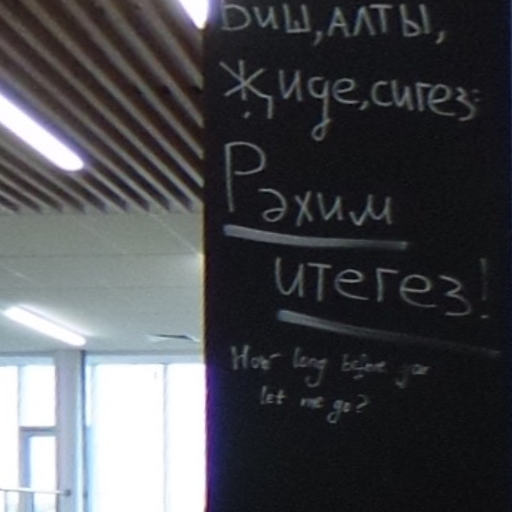 БИШ, АЛТЫ,
Җиде, сигез:
Рәхим
итегез!
How long before you
let me go?